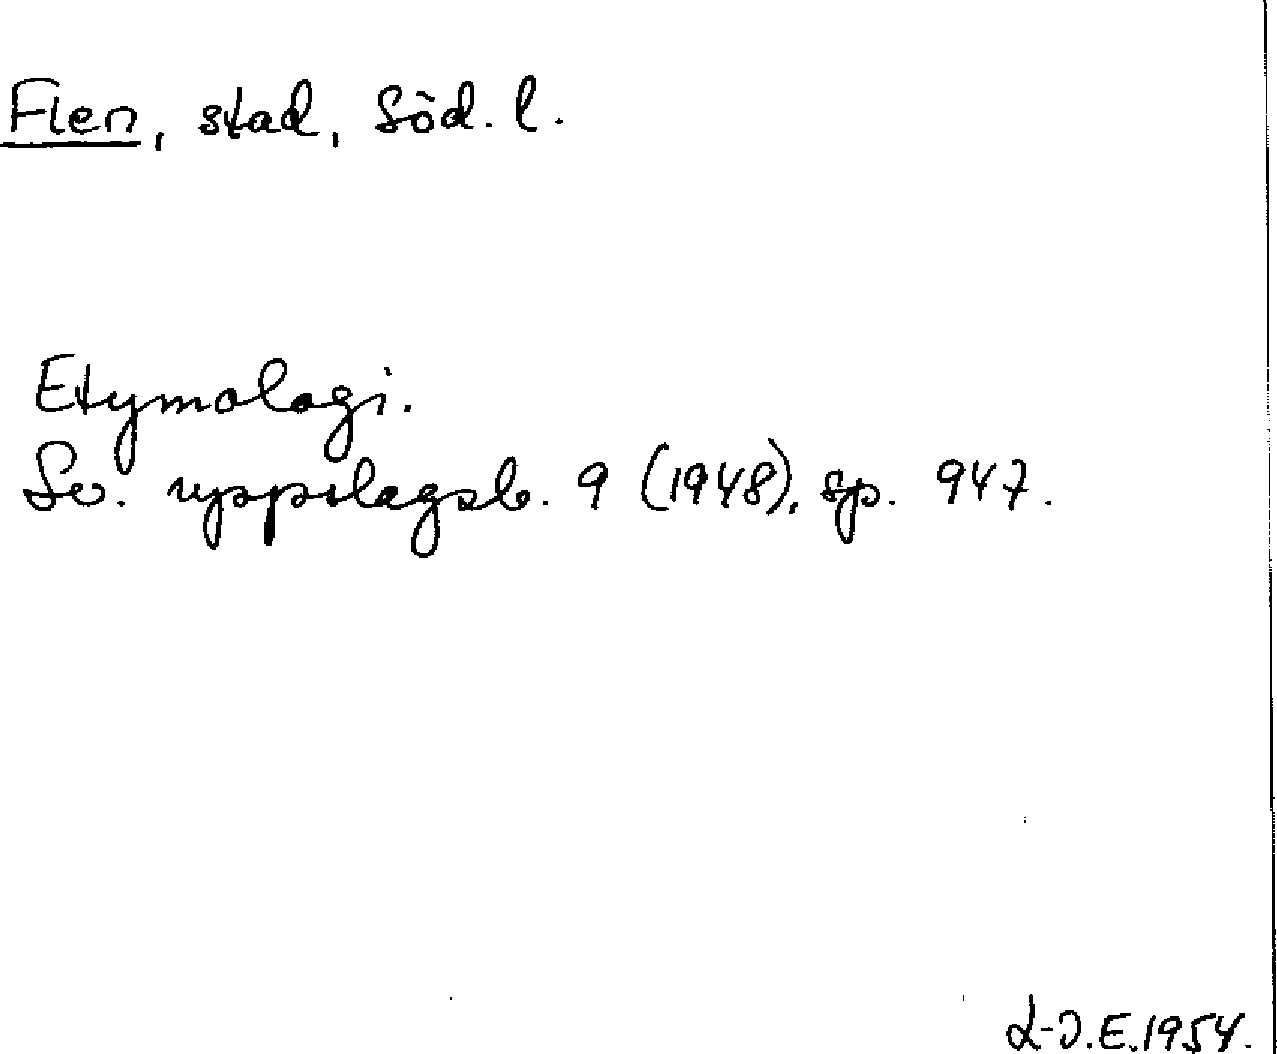 Flen, stad, Söd. l.
Etymologi.
Sv. uppslagsb. 9 (1948), sp. 947.
L-J.E. 1954.